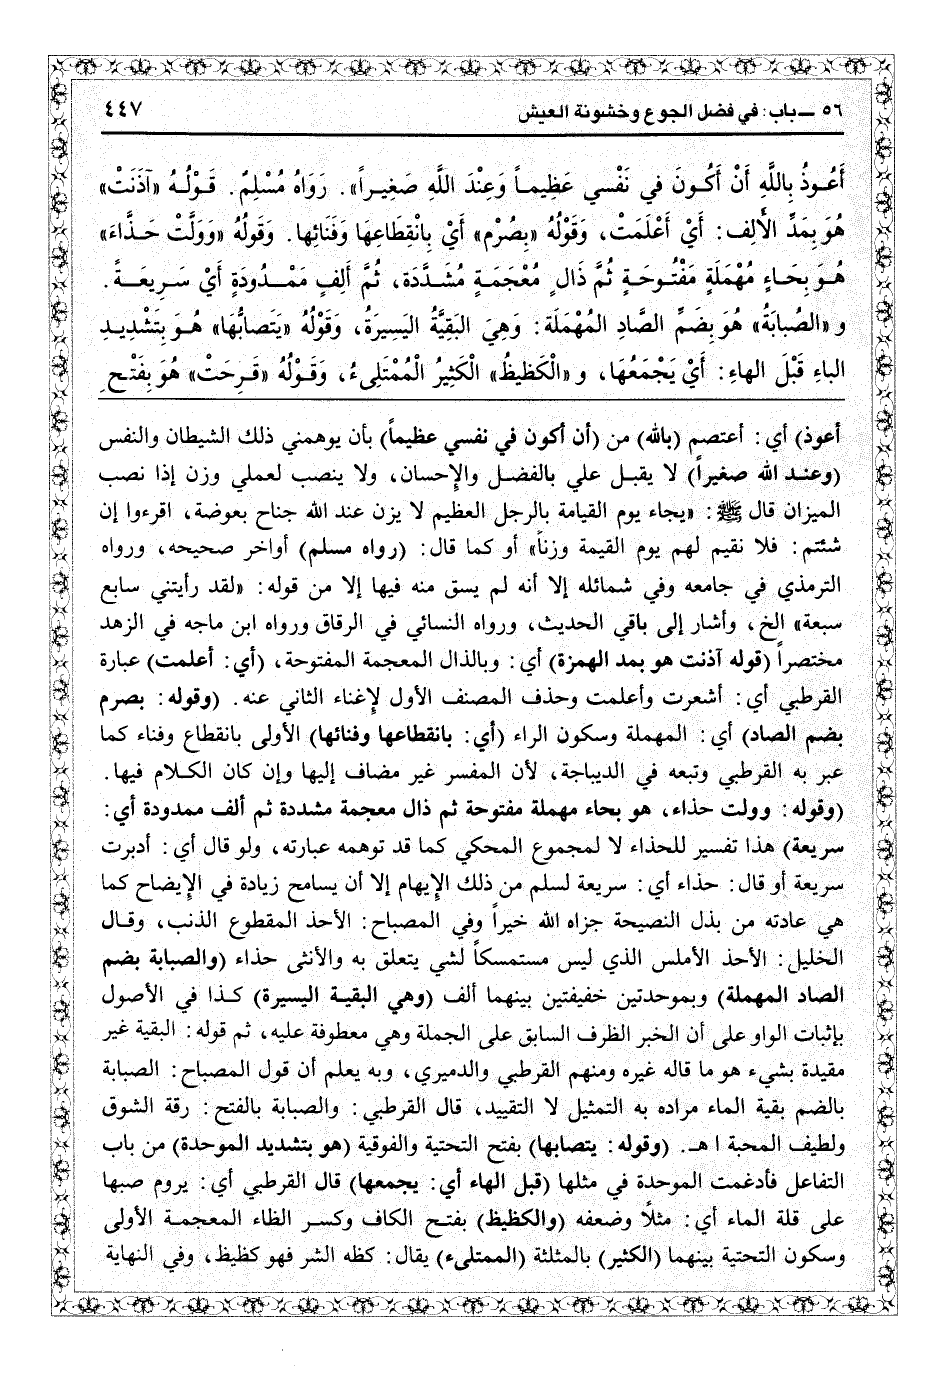 ٥٦ ــ باب: في فضل الجوع وخشونة العيش ٤٤٧
أَعُوذُ بِاللَّهِ أَنْ أَكُونَ في نَفْسي عَظِيماً وَعِنْدَ اللَّهِ صَغِيراً». رَوَاهُ مُسْلِمٌ. قَوْلُهُ «آذَنَتْ»
هُوَ بِمَدِّ الأَلِف: أَيْ أَعْلَمَتْ، وَقَوْلُهُ «بِصُرْم» أَيْ بِانْقِطَاعِهَا وَفَنَائِها. وَقَولُهُ «وَوَلَّتْ حَذَّاءَ»
هُوَ بِحَاءٍ مُهْمَلَةٍ مَفْتُوحَةٍ ثُمَّ ذَالٍ مُعْجَمَةٍ مُشَدَّدَة، ثُمَّ أَلِفٍ مَمْدُودَةٍ أَيْ سَرِيعَةً.
و «الصُّبابَةُ» هُوَ بِضَمِّ الصَّادِ المُهْمَلَة: وَهِيَ البَقِيَّةُ اليَسِيرَةُ، وَقَوْلُهُ «يَتَصابُّهَا» هُوَ بِتَشْدِيدِ
الباءِ قَبْلَ الهاءِ: أَيْ يَجْمَعُهَا، و «الْكَظيظُ» الْكَثِيرُ الْمُمْتَلِىءُ، وَقَوْلُهُ «قَرِحَتْ» هُوَ بِفَتْحِ
أعوذ) أي: أعتصم (بالله) من (أن أكون في نفسي عظيماً) بأن يوهمني ذلك الشيطان والنفس
(وعند الله صغيراً) لا يقبل علي بالفضل والإِحسان، ولا ينصب لعملي وزن إذا نصب
الميزان قال ﷺ: «يجاء يوم القيامة بالرجل العظيم لا يزن عند الله جناح بعوضة، اقرءوا إن
شئتم: فلا نقيم لهم يوم القيمة وزناً» أو كما قال: (رواه مسلم) أواخر صحيحه، ورواه
الترمذي في جامعه وفي شمائله إلا أنه لم يسق منه فيها إلا من قوله: «لقد رأيتني سابع
سبعة» الخ، وأشار إلى باقي الحديث، ورواه النسائي في الرقاق ورواه ابن ماجه في الزهد
مختصراً (قوله آذنت هو بمد الهمزة) أي: وبالذال المعجمة المفتوحة، (أي: أعلمت) عبارة
القرطبي أي: أشعرت وأعلمت وحذف المصنف الأول لإِغناء الثاني عنه. (وقوله: بصرم
بضم الصاد) أي: المهملة وسكون الراء (أي: بانقطاعها وفنائها) الأولى بانقطاع وفناء كما
عبر به القرطبي وتبعه في الديباجة، لأن المفسر غير مضاف إليها وإن كان الكلام فيها.
(وقوله: وولت حذاء، هو بحاء مهملة مفتوحة ثم ذال معجمة مشددة ثم ألف ممدودة أي:
سريعة) هذا تفسير للحذاء لا لمجموع المحكي كما قد توهمه عبارته، ولو قال أي: أدبرت
سريعة أو قال: حذاء أي: سريعة لسلم من ذلك الإِيهام إلا أن يسامح زيادة في الإِيضاح كما
هي عادته من بذل النصيحة جزاه الله خيراً وفي المصباح: الأحذ المقطوع الذنب، وقال
الخليل: الأحذ الأملس الذي ليس مستمسكاً لشي يتعلق به والأنثى حذاء (والصبابة بضم
الصاد المهملة) وبموحدتين خفيفتين بينهما ألف (وهي البقية اليسيرة) كذا في الأصول
بإثبات الواو على أن الخبر الظرف السابق على الجملة وهي معطوفة عليه، ثم قوله: البقية غير
مقيدة بشيء هو ما قاله غيره ومنهم القرطبي والدميري، وبه يعلم أن قول المصباح: الصبابة
بالضم بقية الماء مراده به التمثيل لا التقييد، قال القرطبي: والصبابة بالفتح: رقة الشوق
ولطيف المحبة ا هـ. (وقوله: يتصابها) بفتح التحتية والفوقية (هو بتشديد الموحدة) من باب
التفاعل فأدغمت الموحدة في مثلها (قبل الهاء أي: يجمعها) قال القرطبي أي: يروم صبها
على قلة الماء أي: مثلاً وضعفه (والكظيظ) بفتح الكاف وكسر الظاء المعجمة الأولى
وسكون التحتية بينهما (الكثير) بالمثلثة (الممتلىء) يقال: كظه الشر فهو كظيظ، وفي النهاية